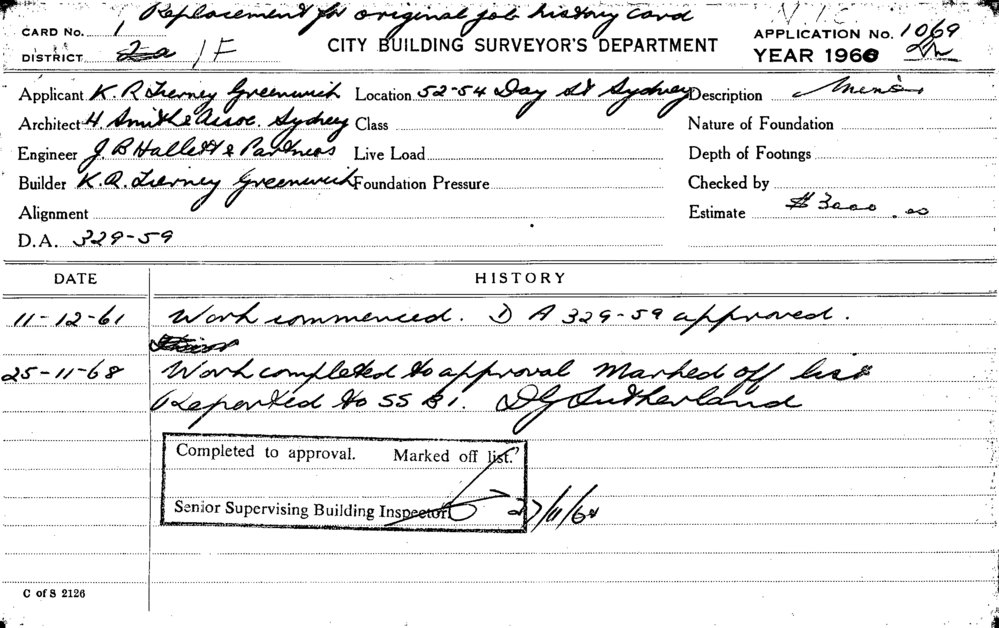 Replacement for original job history card
CARD No. 1
CITY BUILDING SURVEYOR'S DEPARTMENT
APPLICATION No. 1069
DISTRICT 2a 1F
YEAR 1960
Applicant K. R Tierney Greenwich Location 52-54 Day St Sydney Description
Architect H. Smith & Assoc. Sydney Class Nature of Foundation
Engineer J. B Hallett & Partners Live Load Depth of Footings
Builder K. R. Tierney Greenwich Foundation Pressure Checked by
Alignment Estimate $3000.00
D.A. 329-59
DATE HISTORY
11-12-61 Work commenced. D A 329-59 approved.
25-11-68 Work completed to approval Marked off list
Reported to SSBI. DG Sutherland
Completed to approval. Marked off list.
Senior Supervising Building Inspector 27/11/68
C of S 2126